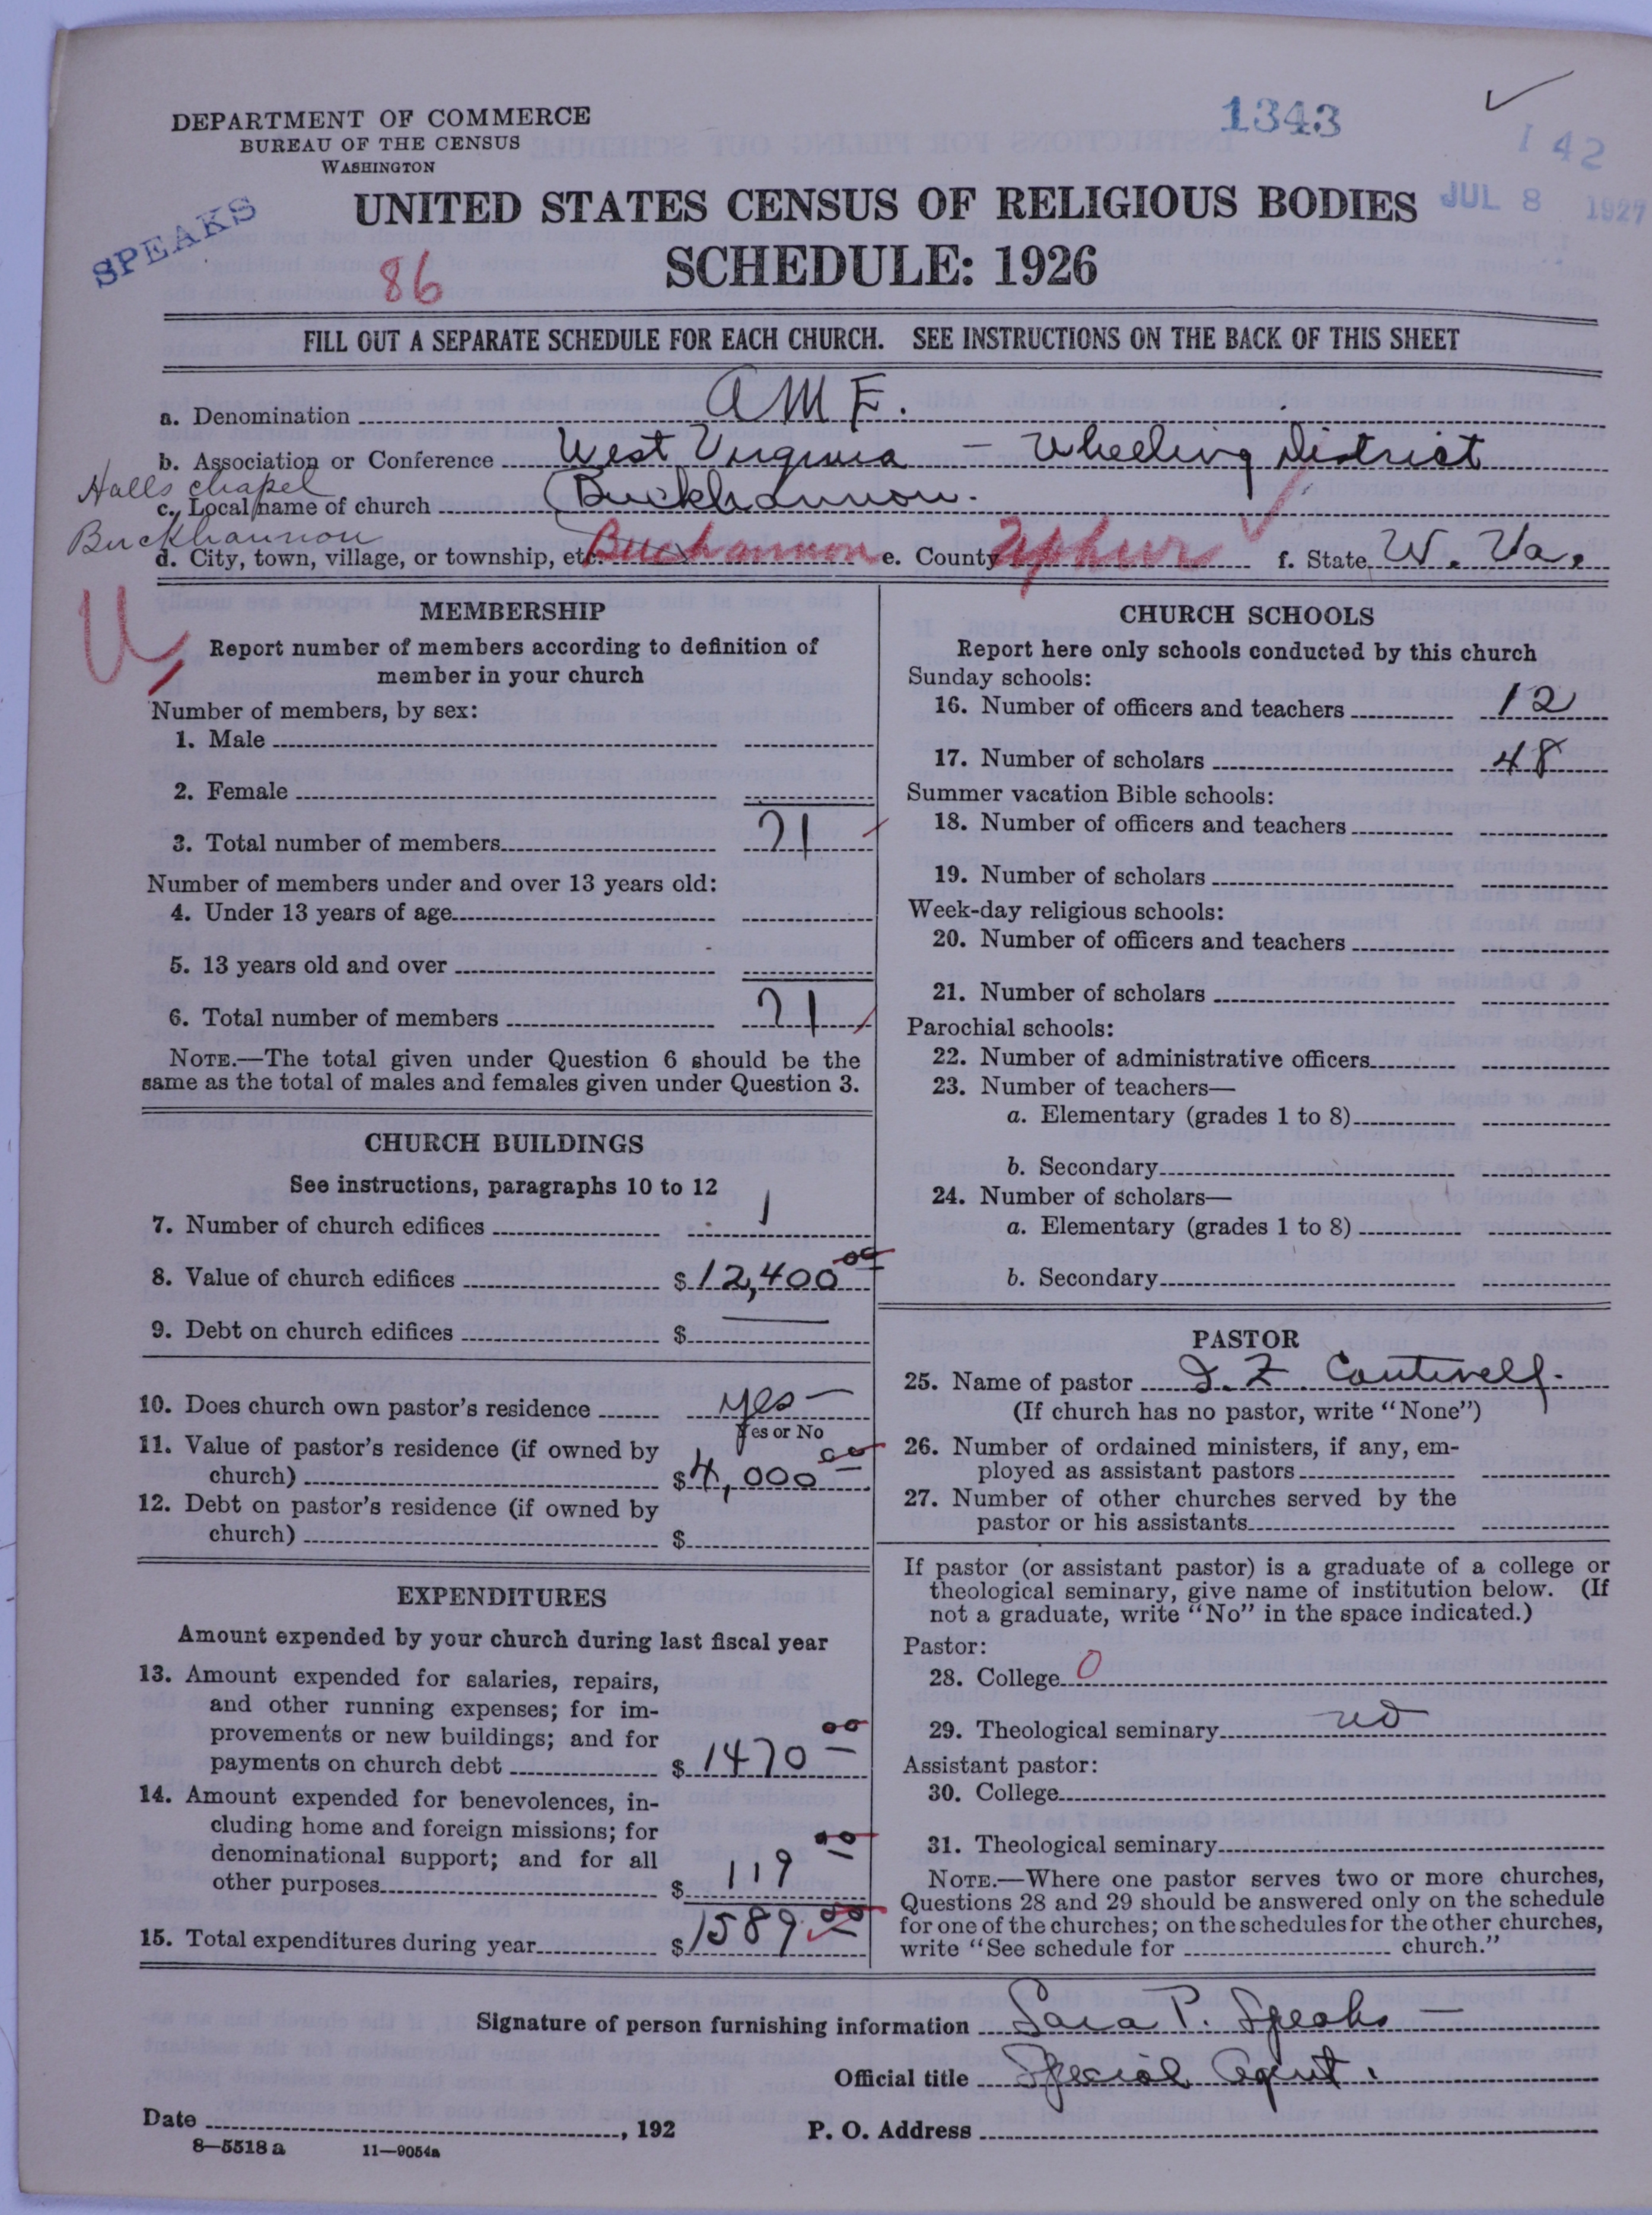 DEPARTMENT OF COMMERCE
BUREAU OF THE CENSUS
WASHINGTON
1343
142
JUL 8 1927
SPEAKS
86
UNITED STATES CENSUS OF RELIGIOUS BODIES
SCHEDULE: 1926
FILL OUT A SEPARATE SCHEDULE FOR EACH CHURCH. SEE INSTRUCTIONS ON THE BACK OF THIS SHEET
a. Denomination A M E.
b. Association or Conference West Virginia – Wheeling District
Halls chapel
c. Local name of church Buckhannon.
Buckhannon
d. City, town, village, or township, etc. Buchannon e. County Upshur f. State W. Va.
U
MEMBERSHIP
Report number of members according to definition of
member in your church
Number of members, by sex:
1. Male
2. Female
3. Total number of members 71
Number of members under and over 13 years old:
4. Under 13 years of age
5. 13 years old and over
6. Total number of members 71
NOTE.—The total given under Question 6 should be the
same as the total of males and females given under Question 3.
CHURCH BUILDINGS
See instructions, paragraphs 10 to 12
7. Number of church edifices 1
8. Value of church edifices $ 12,400 00
9. Debt on church edifices $ —
10. Does church own pastor's residence yes –
Yes or No
11. Value of pastor's residence (if owned by
church) $ 4,000 00
12. Debt on pastor's residence (if owned by
church) $
EXPENDITURES
Amount expended by your church during last fiscal year
13. Amount expended for salaries, repairs,
and other running expenses; for im-
provements or new buildings; and for
payments on church debt $ 1470 00
14. Amount expended for benevolences, in-
cluding home and foreign missions; for
denominational support; and for all
other purposes $ 119 00
15. Total expenditures during year $ 1589.00
CHURCH SCHOOLS
Report here only schools conducted by this church
Sunday schools:
16. Number of officers and teachers 12
17. Number of scholars 48
Summer vacation Bible schools:
18. Number of officers and teachers
19. Number of scholars
Week-day religious schools:
20. Number of officers and teachers
21. Number of scholars
Parochial schools:
22. Number of administrative officers
23. Number of teachers—
a. Elementary (grades 1 to 8)
b. Secondary
24. Number of scholars—
a. Elementary (grades 1 to 8)
b. Secondary
PASTOR
25. Name of pastor Cantwell.
(If church has no pastor, write "None")
26. Number of ordained ministers, if any, em-
ployed as assistant pastors
27. Number of other churches served by the
pastor or his assistants
If pastor (or assistant pastor) is a graduate of a college or
theological seminary, give name of institution below. (If
not a graduate, write "No" in the space indicated.)
Pastor:
28. College 0
29. Theological seminary no
Assistant pastor:
30. College
31. Theological seminary
NOTE.—Where one pastor serves two or more churches,
Questions 28 and 29 should be answered only on the schedule
for one of the churches; on the schedules for the other churches,
write "See schedule for church."
Signature of person furnishing information Sara P. Speaks –
Official title Special Agent.
Date , 192 P. O. Address
8—5518 a 11—9054a